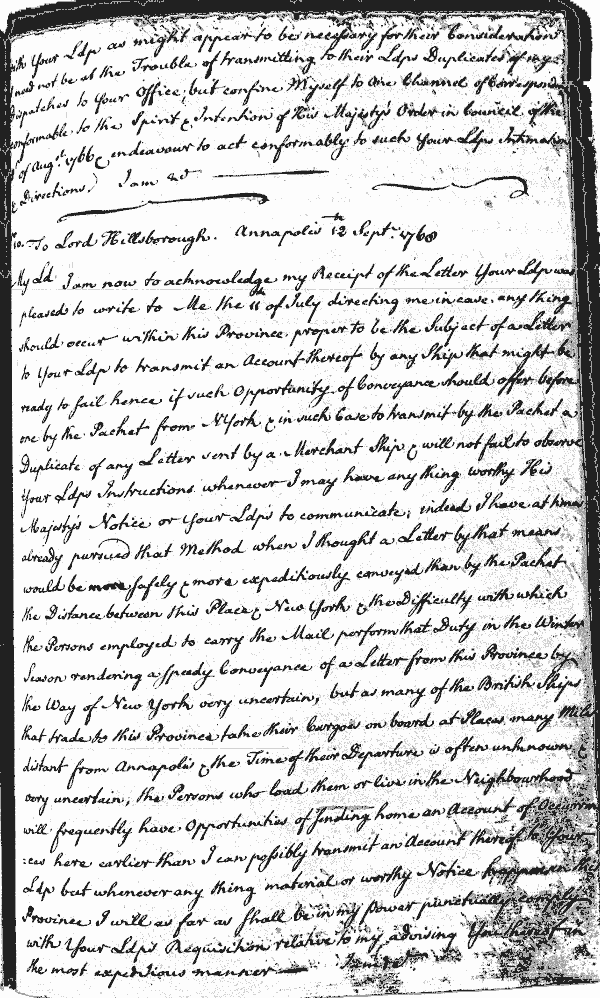 with Your Ldp as might appear to be necessary for their Consideration
need not be at the Trouble of transmitting to their Ldps Duplicates of my
Dispatches to Your Office, but confine Myself to One Channel of Corresponde
conformable to the Spirit & Intention of His Majesty's Order in Council of the
of Augst 1766 & endeavour to act conformably to such Your Ldps Intimation
& Directions. I am &ca
To Lord Hillsborough. Annapolis 12th Septr 1768
My Ld I am now to acknowledge my Receipt of the Letter Your Ldp was
pleased to write to Me the 11th of July directing me in case any thing
should occur within this Province proper to be the Subject of a Letter
to Your Ldp to transmit an Account thereof by any Ship that might be
ready to sail hence if such Opportunity of Conveyance should offer before
one by the Packet from NYork & in such Case to transmit by the Packet a
Duplicate of any Letter sent by a Merchant Ship & will not fail to observe
Your Ldps Instructions whenever I may have any thing worthy His
Majesty's Notice or Your Ldps to communicate; indeed I have at times
already pursued that Method when I thought a Letter by that means
would be more safely & more expeditiously conveyed than by the Packet
the Distance between this Place & New York & the Difficulty with which
the Persons employed to carry the Mail perform that Duty in the Winter
Season rendering a speedy Conveyance of a Letter from this Province by
the Way of New York very uncertain; but as many of the British Ships
that trade to this Province take their Cargoes on board at Places many Miles
distant from Annapolis & the Time of their Departure is often unknown &
very uncertain, the Persons who load them or live in the Neighbourhood
will frequently have Opportunities of sending home an Account of Occurren
:ces here earlier than I can possibly transmit an Account thereof to Your
Ldp but whenever any thing material or worthy Notice happens in this
Province I will as far as shall be in my power punctually comply
with Your Ldps Requisition relative to my advising You thereof in
the most expeditious manner — I am &ca